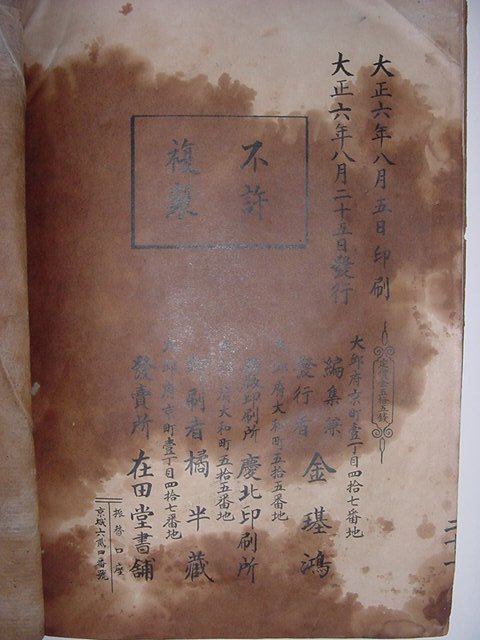 大正六年八月五日印刷
大正六年八月二十五日發行
不許
複製
定價金三拾五錢
大邱府京町壹丁目四拾七番地
編集兼
發行者 金璂鴻
大邱府大和町五拾五番地
印刷所 慶北印刷所
府大和町五拾五番地
印刷者 橘半藏
大邱府京町壹丁目四拾七番地
發賣所 在田堂書舖
振替口座
京城六貳四番號